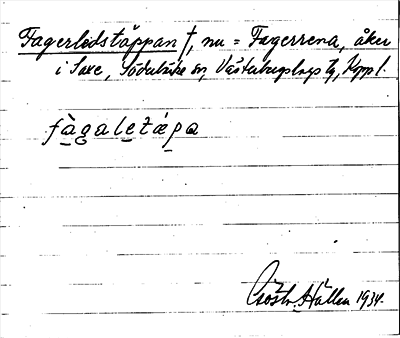 Fagerlidstäppan †, nu = Fagerrena, åker
i Saxe, Söderbärke sn, Västerbergslags tg, Kppl.
fàgaletäpa
Göstr. Hallen 1934.